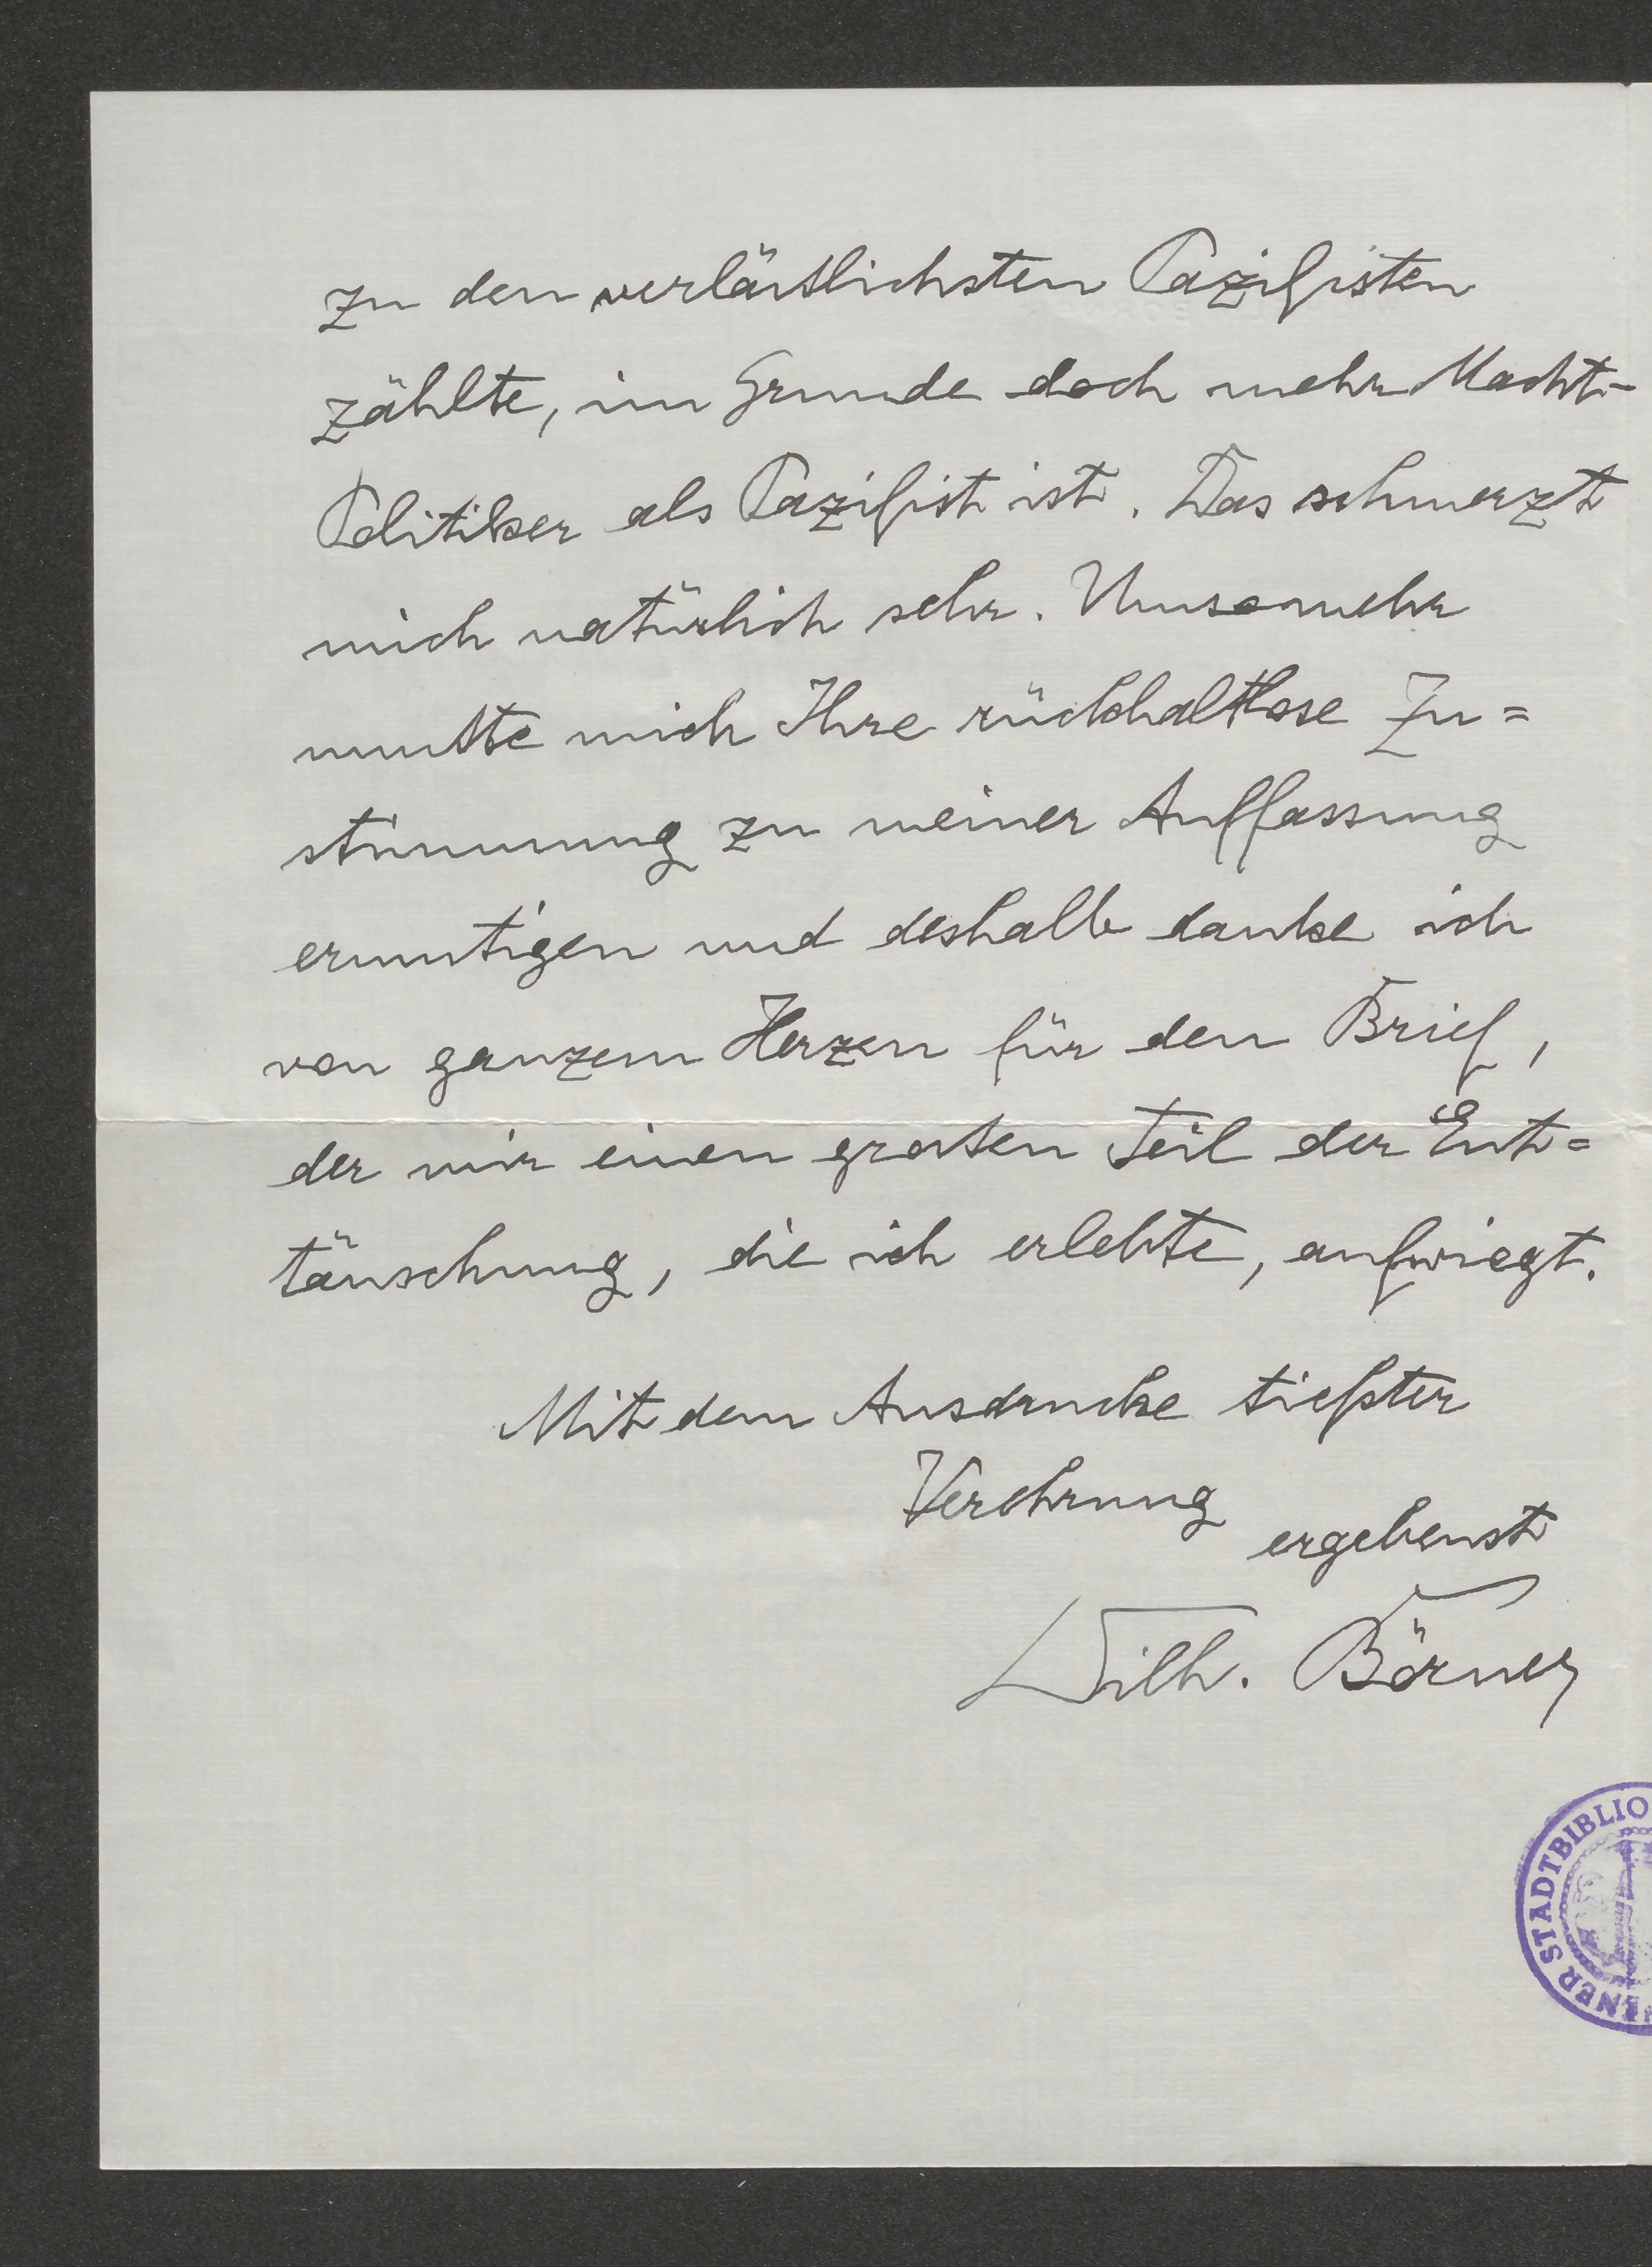 zu den verläßlichsten Pazifisten
zählte, im Grunde doch mehr Macht-
Politiker als Pazifist ist. Das schmerzt
mich natürlich sehr. Umsomehr
mußte mich Ihre rückhaltlose Zu=
stimmung zu meiner Auffassung
ermutigen und deshalb danke ich
von ganzem Herzen für den Brief,
der mir einen großen Teil der Ent=
täuschung, die ich erlebte, aufwiegt.
Mit dem Ausdrucke tiefster
Verehrung
ergebenst
Wilh. Börner
ENER STADTBIBLIO